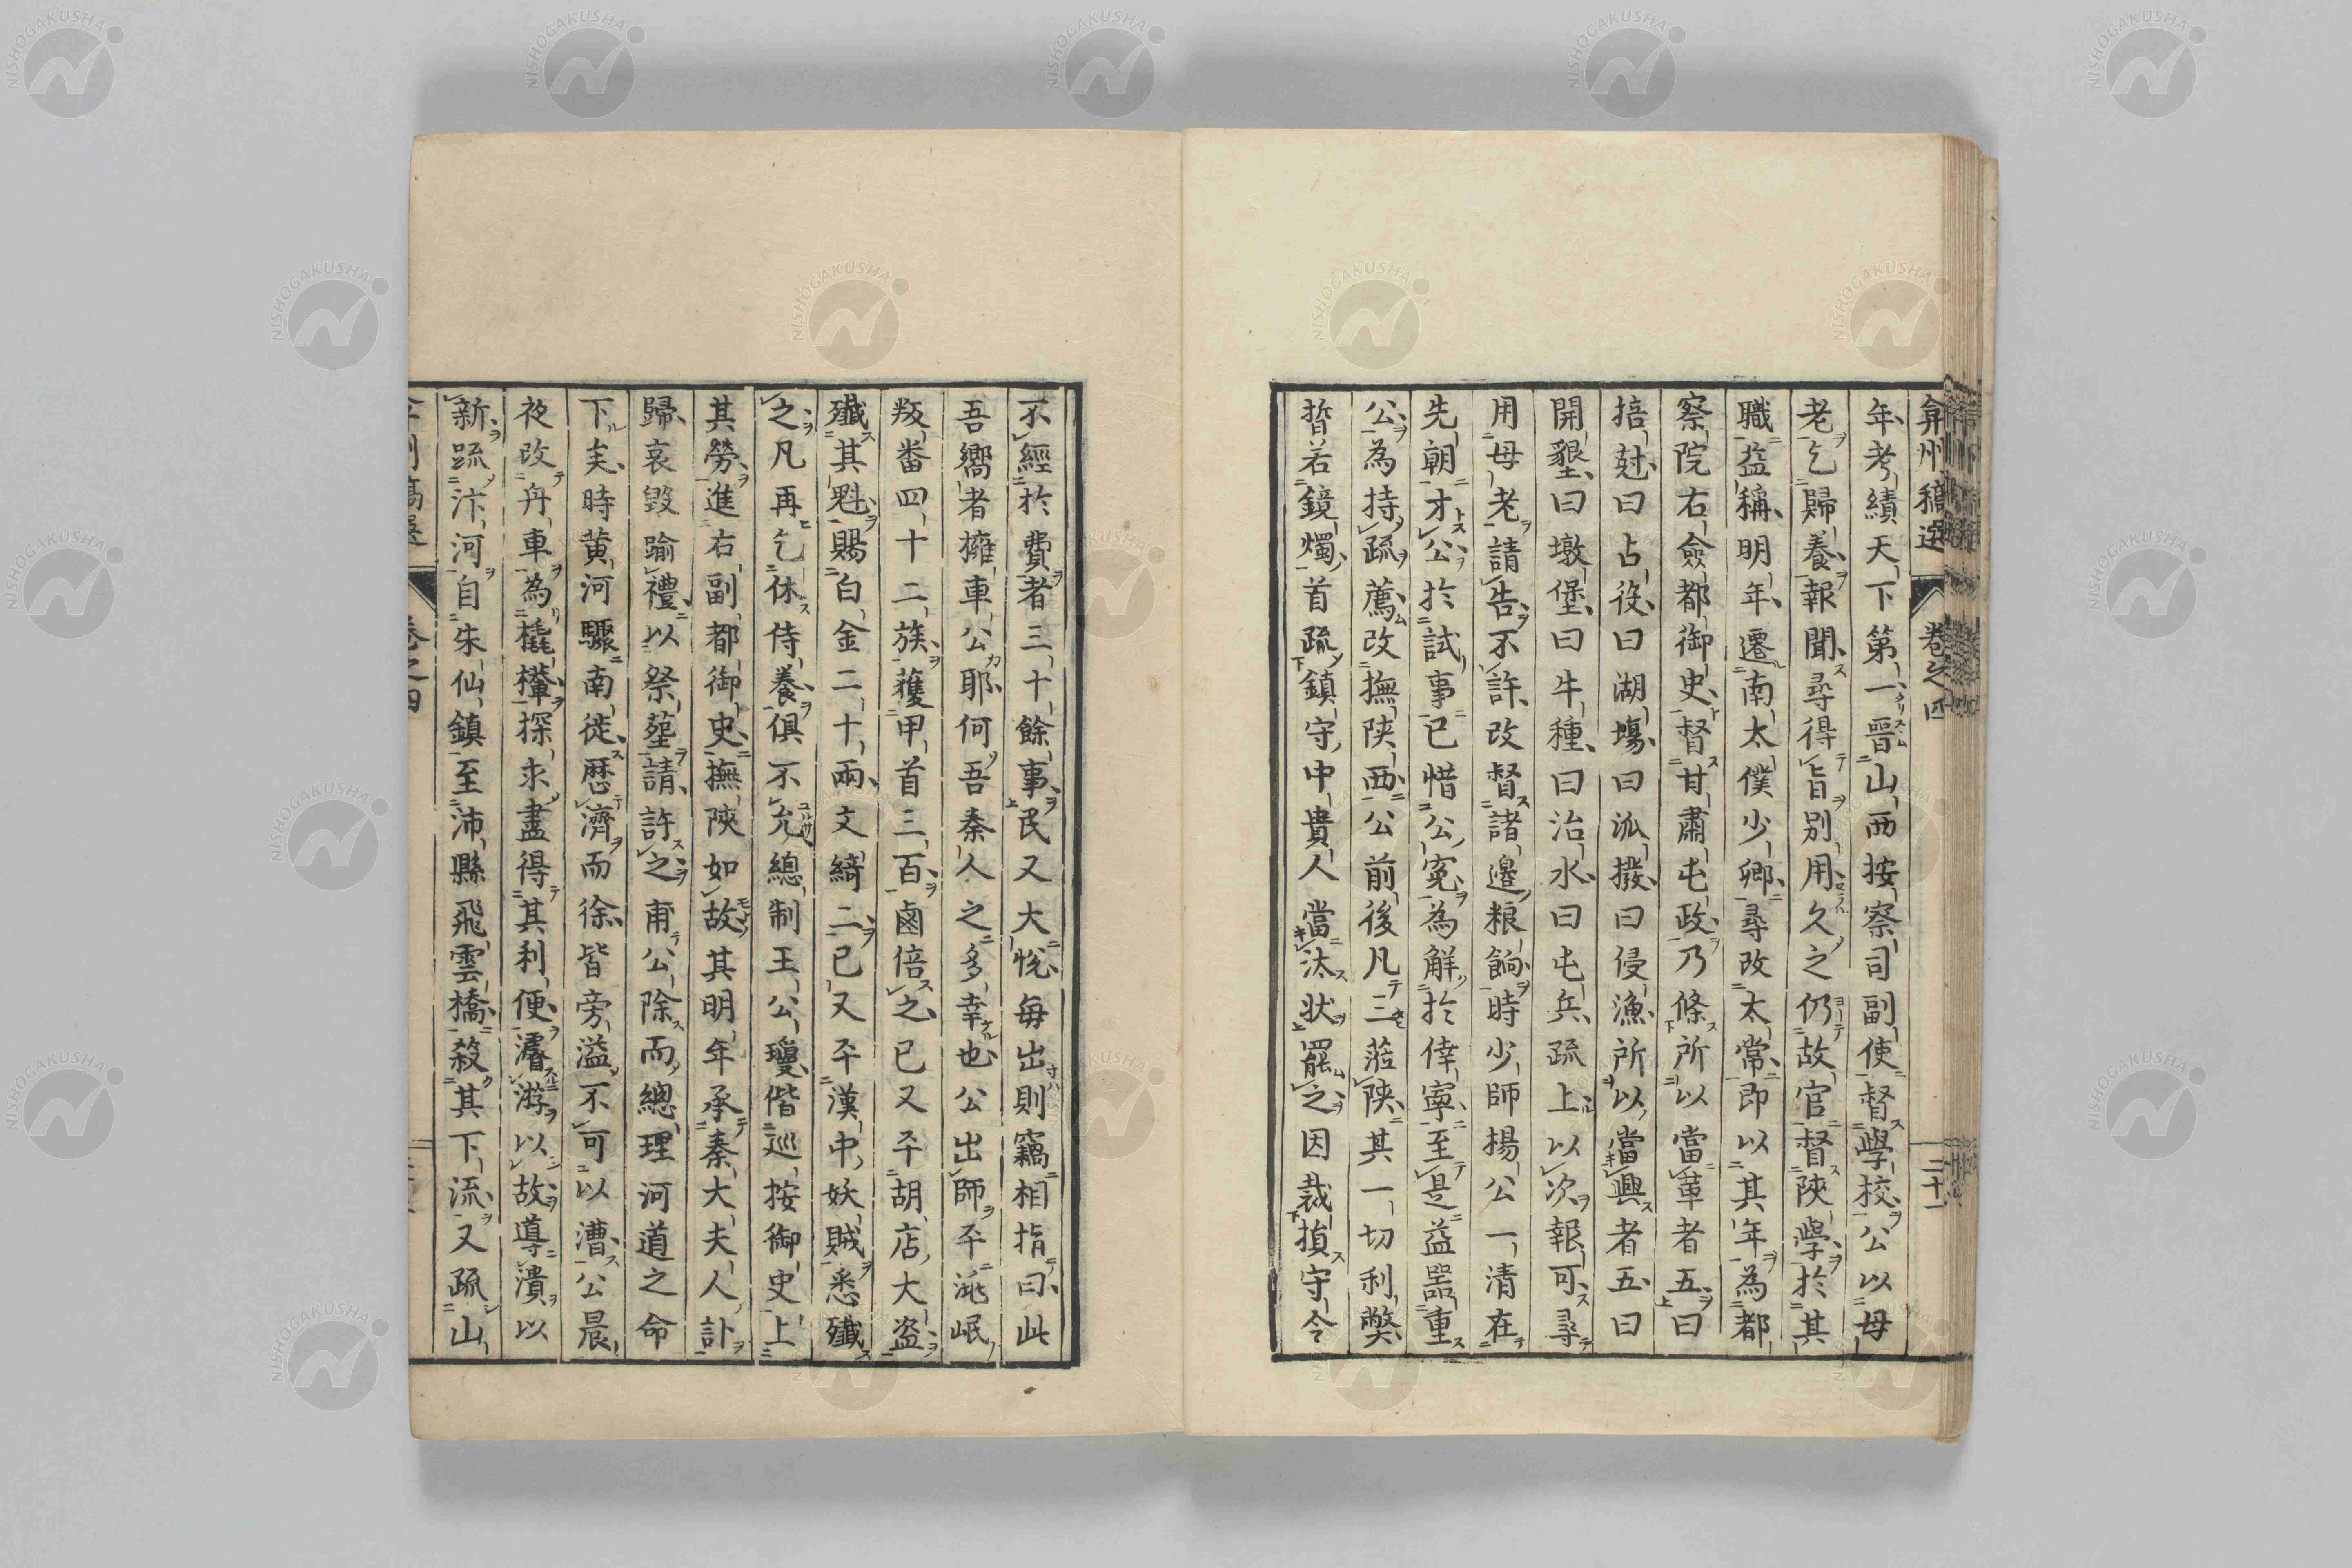 弇州稿選 卷之四 二十一
年考績天下第一晋山西按察司副使督學校公以母
老乞歸養報聞尋得旨別用久之仍故官督陝學於其
職益稱明年遷南太僕少卿尋改太常即以其年為都
察院右僉都御史督甘肅屯政乃條所以當革者五曰
掊尅曰占役曰湖塲曰泒撥曰侵漁所以當興者五曰
開墾曰墩堡曰牛種曰治水曰屯兵疏上以次報可尋
用母老請告不許改督諸邉粮餉時少師楊公一清在
先朝才公於試事已惜公寃為解於倖寧至是益噐重
公為持疏薦改撫陝西公前後凡三蒞陝其一切利獘
皆若鏡燭首疏鎮守中貴人當汰状罷之因裁損守令
不經於費者三十餘事民又大悅每出則竊相指曰此
吾嚮者擁車公耶何吾秦人之多幸也公出師平洮岷
叛畨四十二族獲甲首三百鹵倍之已又平胡店大盗
殲其魁賜白金二十兩文綺二已又平漢中妖賊悉殲
之凡再乞休侍養俱不允總制王公瓊偕巡按御史上
其勞進右副都御史撫陝如故其明年承秦大夫人訃
歸哀毀踰禮以祭塟請許之甫公除而總理河道之命
下矣時黄河驟南徙歴濟而徐皆旁溢不可以漕公晨
夜改舟車為橇檋探求盡得其利便濬游以故導潰以
新疏汴河自朱仙鎮至沛縣飛雲橋殺其下流又疏山